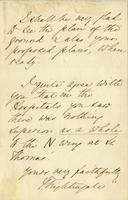 I shall be very glad
to see the plan of the
ground & also your
proposed plans, when
ready.
I quite agree with
you that in the
Hospitals you saw
there was nothing
superior as a whole
to the N. wing at St
Thomas'.
Yours very faithfully
F. Nightingale